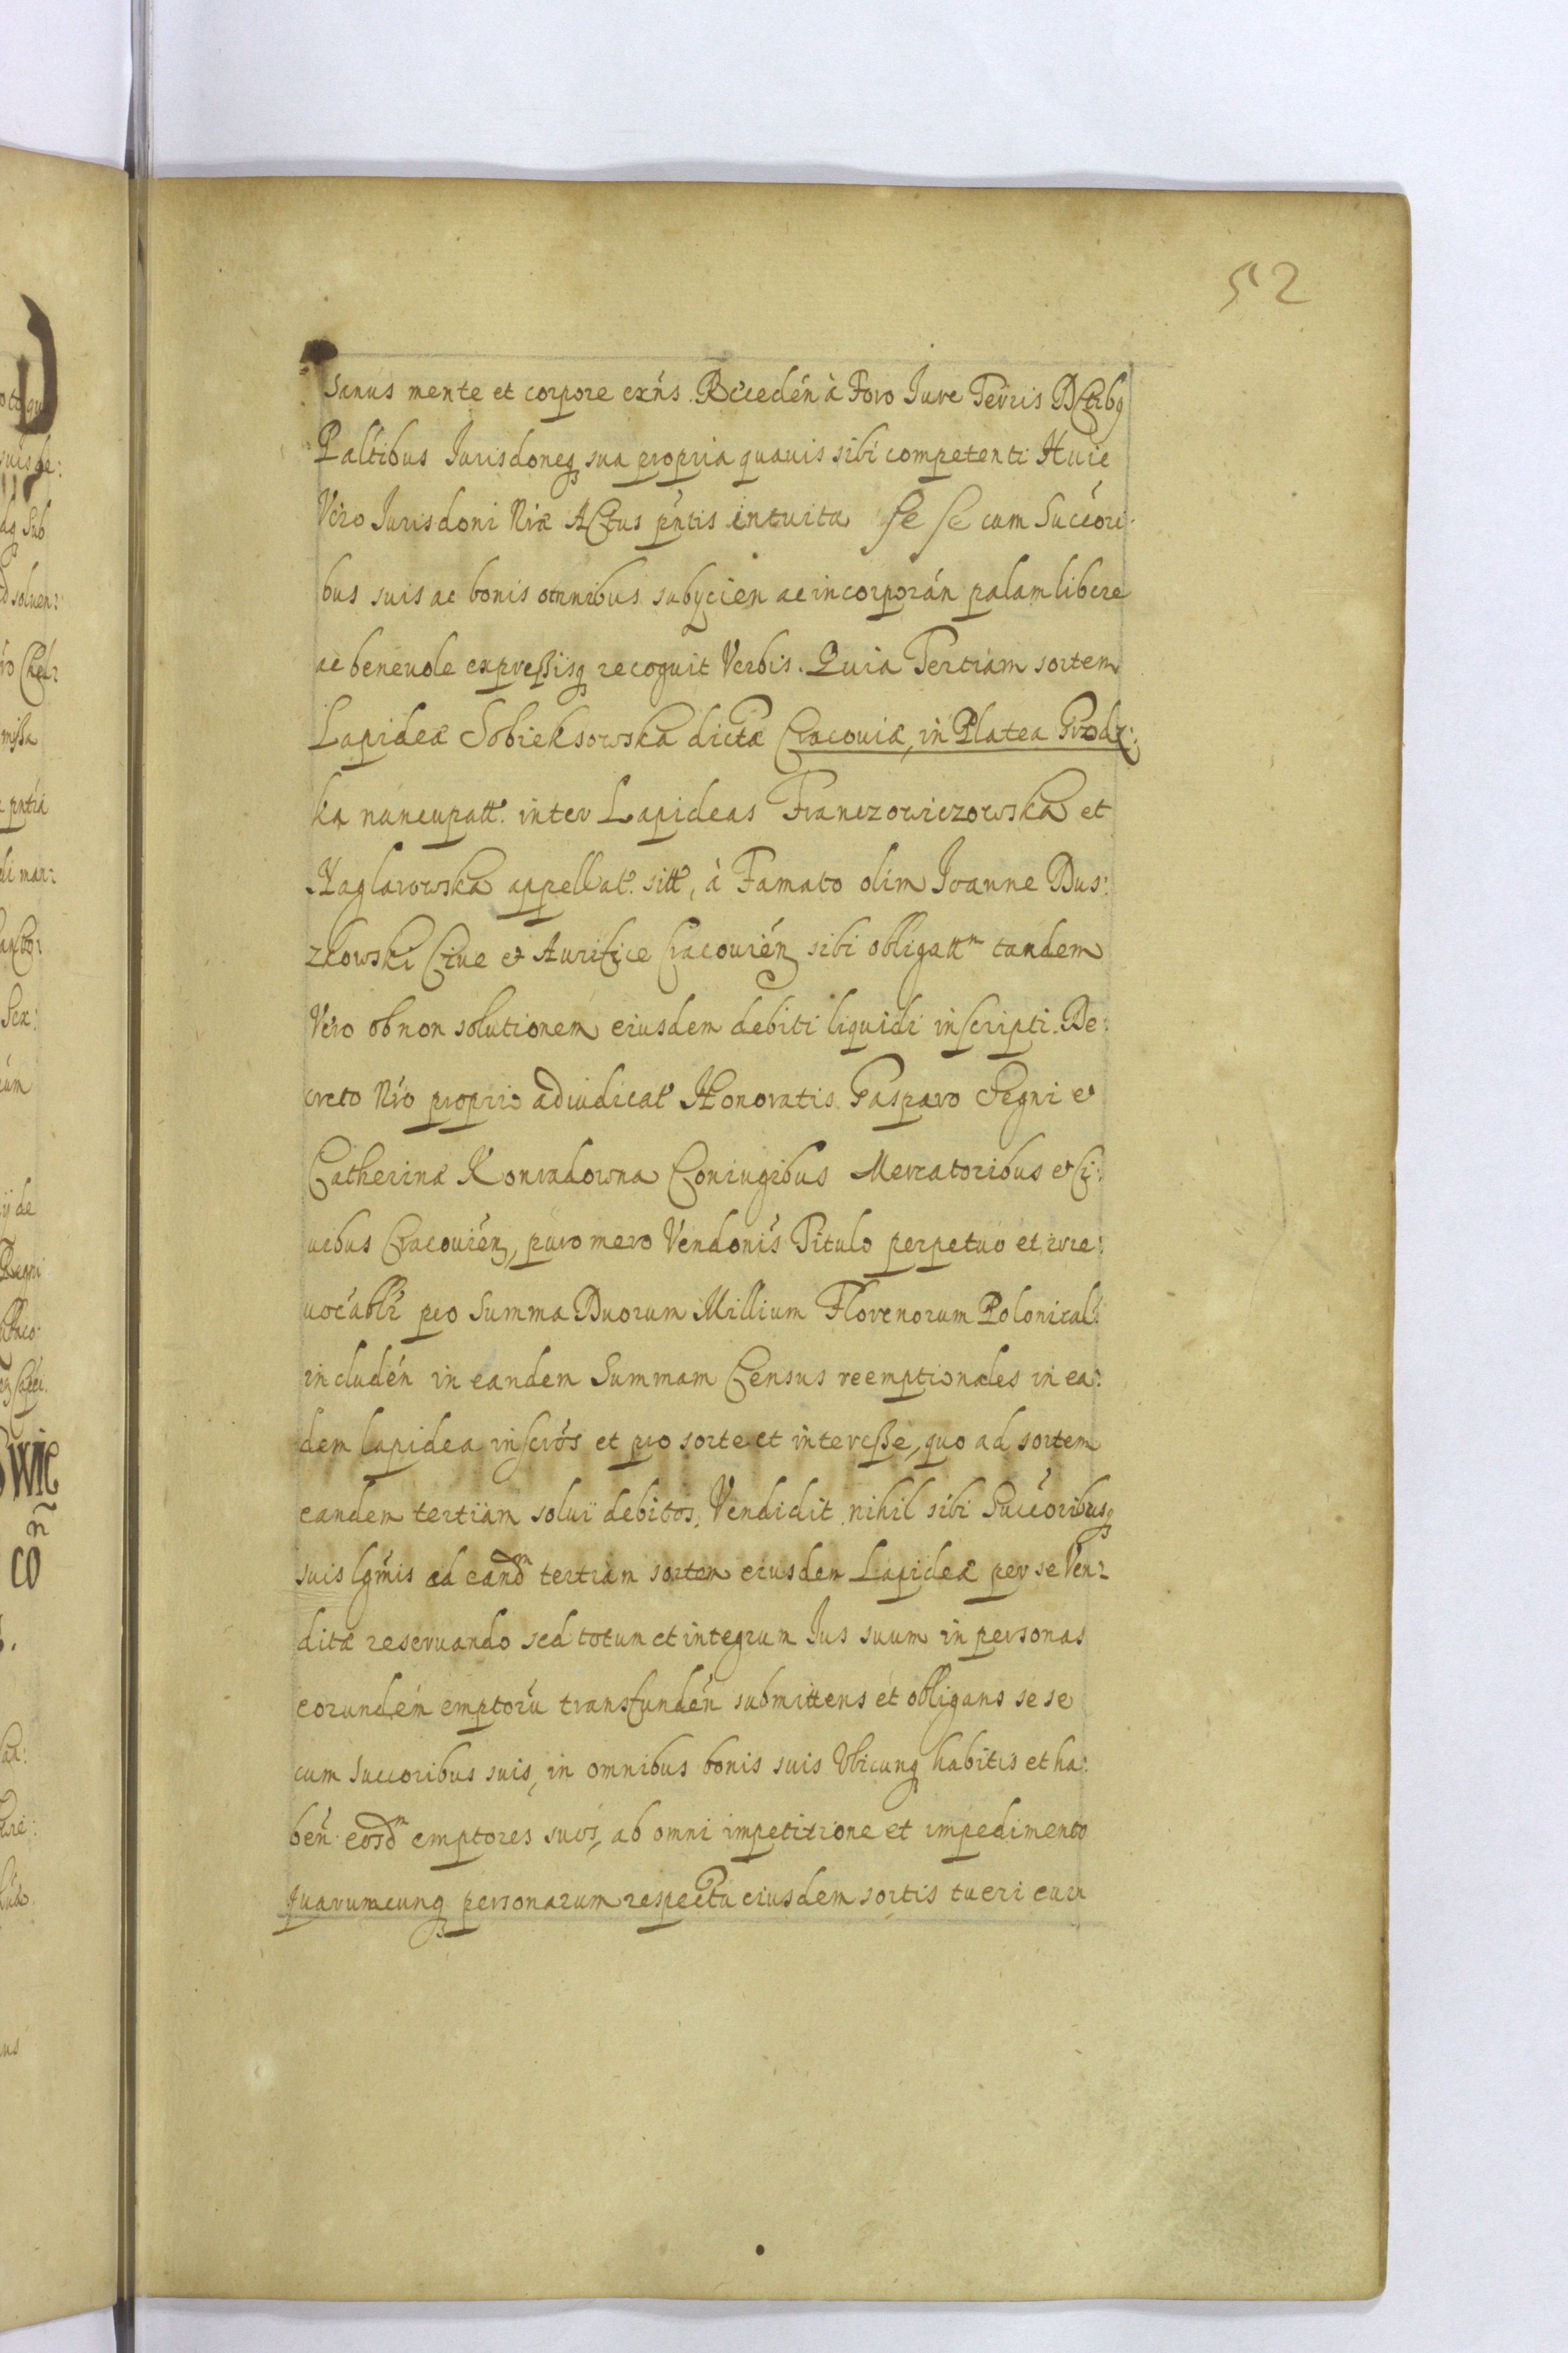 52
Sanus mente et corpore exn̄s. Recedén à Foro Iure Terris Dctibq
Paltibus Iurisdoneq sua propria quauis sibi competenti Huic
Vero Iurisdoni Nræ Actus pn̄tis intuitu se se cum Succori-
bus suis ac bonis omnibus subycien ac incorporán palam libere
ac beneuole expressisq recognit Verbis. Quia Tertiam sortem
Lapideæ Sobieksowska dictæ Cracouiæ, in Platea Grodz:
ka nuncupatt. inter Lapideas Franczowiczowska et
Haglarowska appellat. sitt, à Famato olim Ioanne Dus:
zkowski Ciue et Aurifice Cracouién sibi obligattm tandem
Vero ob non solutionem eiusdem debiti liquidi inscripti. De:
creto Nro proprio adiudicat Honoratis Gasparo Segni et
Catherinæ Konradowna Coniugibus Mercatoribus et Ci:
uibus Cracouién, puro mero Vendonis Titulo perpetuo et irre:
uocabli pro Summa Duorum Millium Florenorum Polonical:
includén in eandem Summam Census reemptionales in ea:
dem lapidea inscros et pro sorte et interesse, quo ad sortem
eandem tertiam solui debitos, Vendidit nihil sibi Succoribusq
suis lgmis ad eandm tertiam sortem eiusdem Lapideæ per se Ven:
ditæ reseruando sed totum et integrum Ius suum in personas
eorundém emptorū transfundén submittens et obligans se se
cum succoribus suis, in omnibus bonis suis Vbicunq habitis et ha:
ben̄ eosdm emptores suos, ab omni impetitione et impedimento
quarumcunq personarum respectu eiusdem sortis tueri eui: